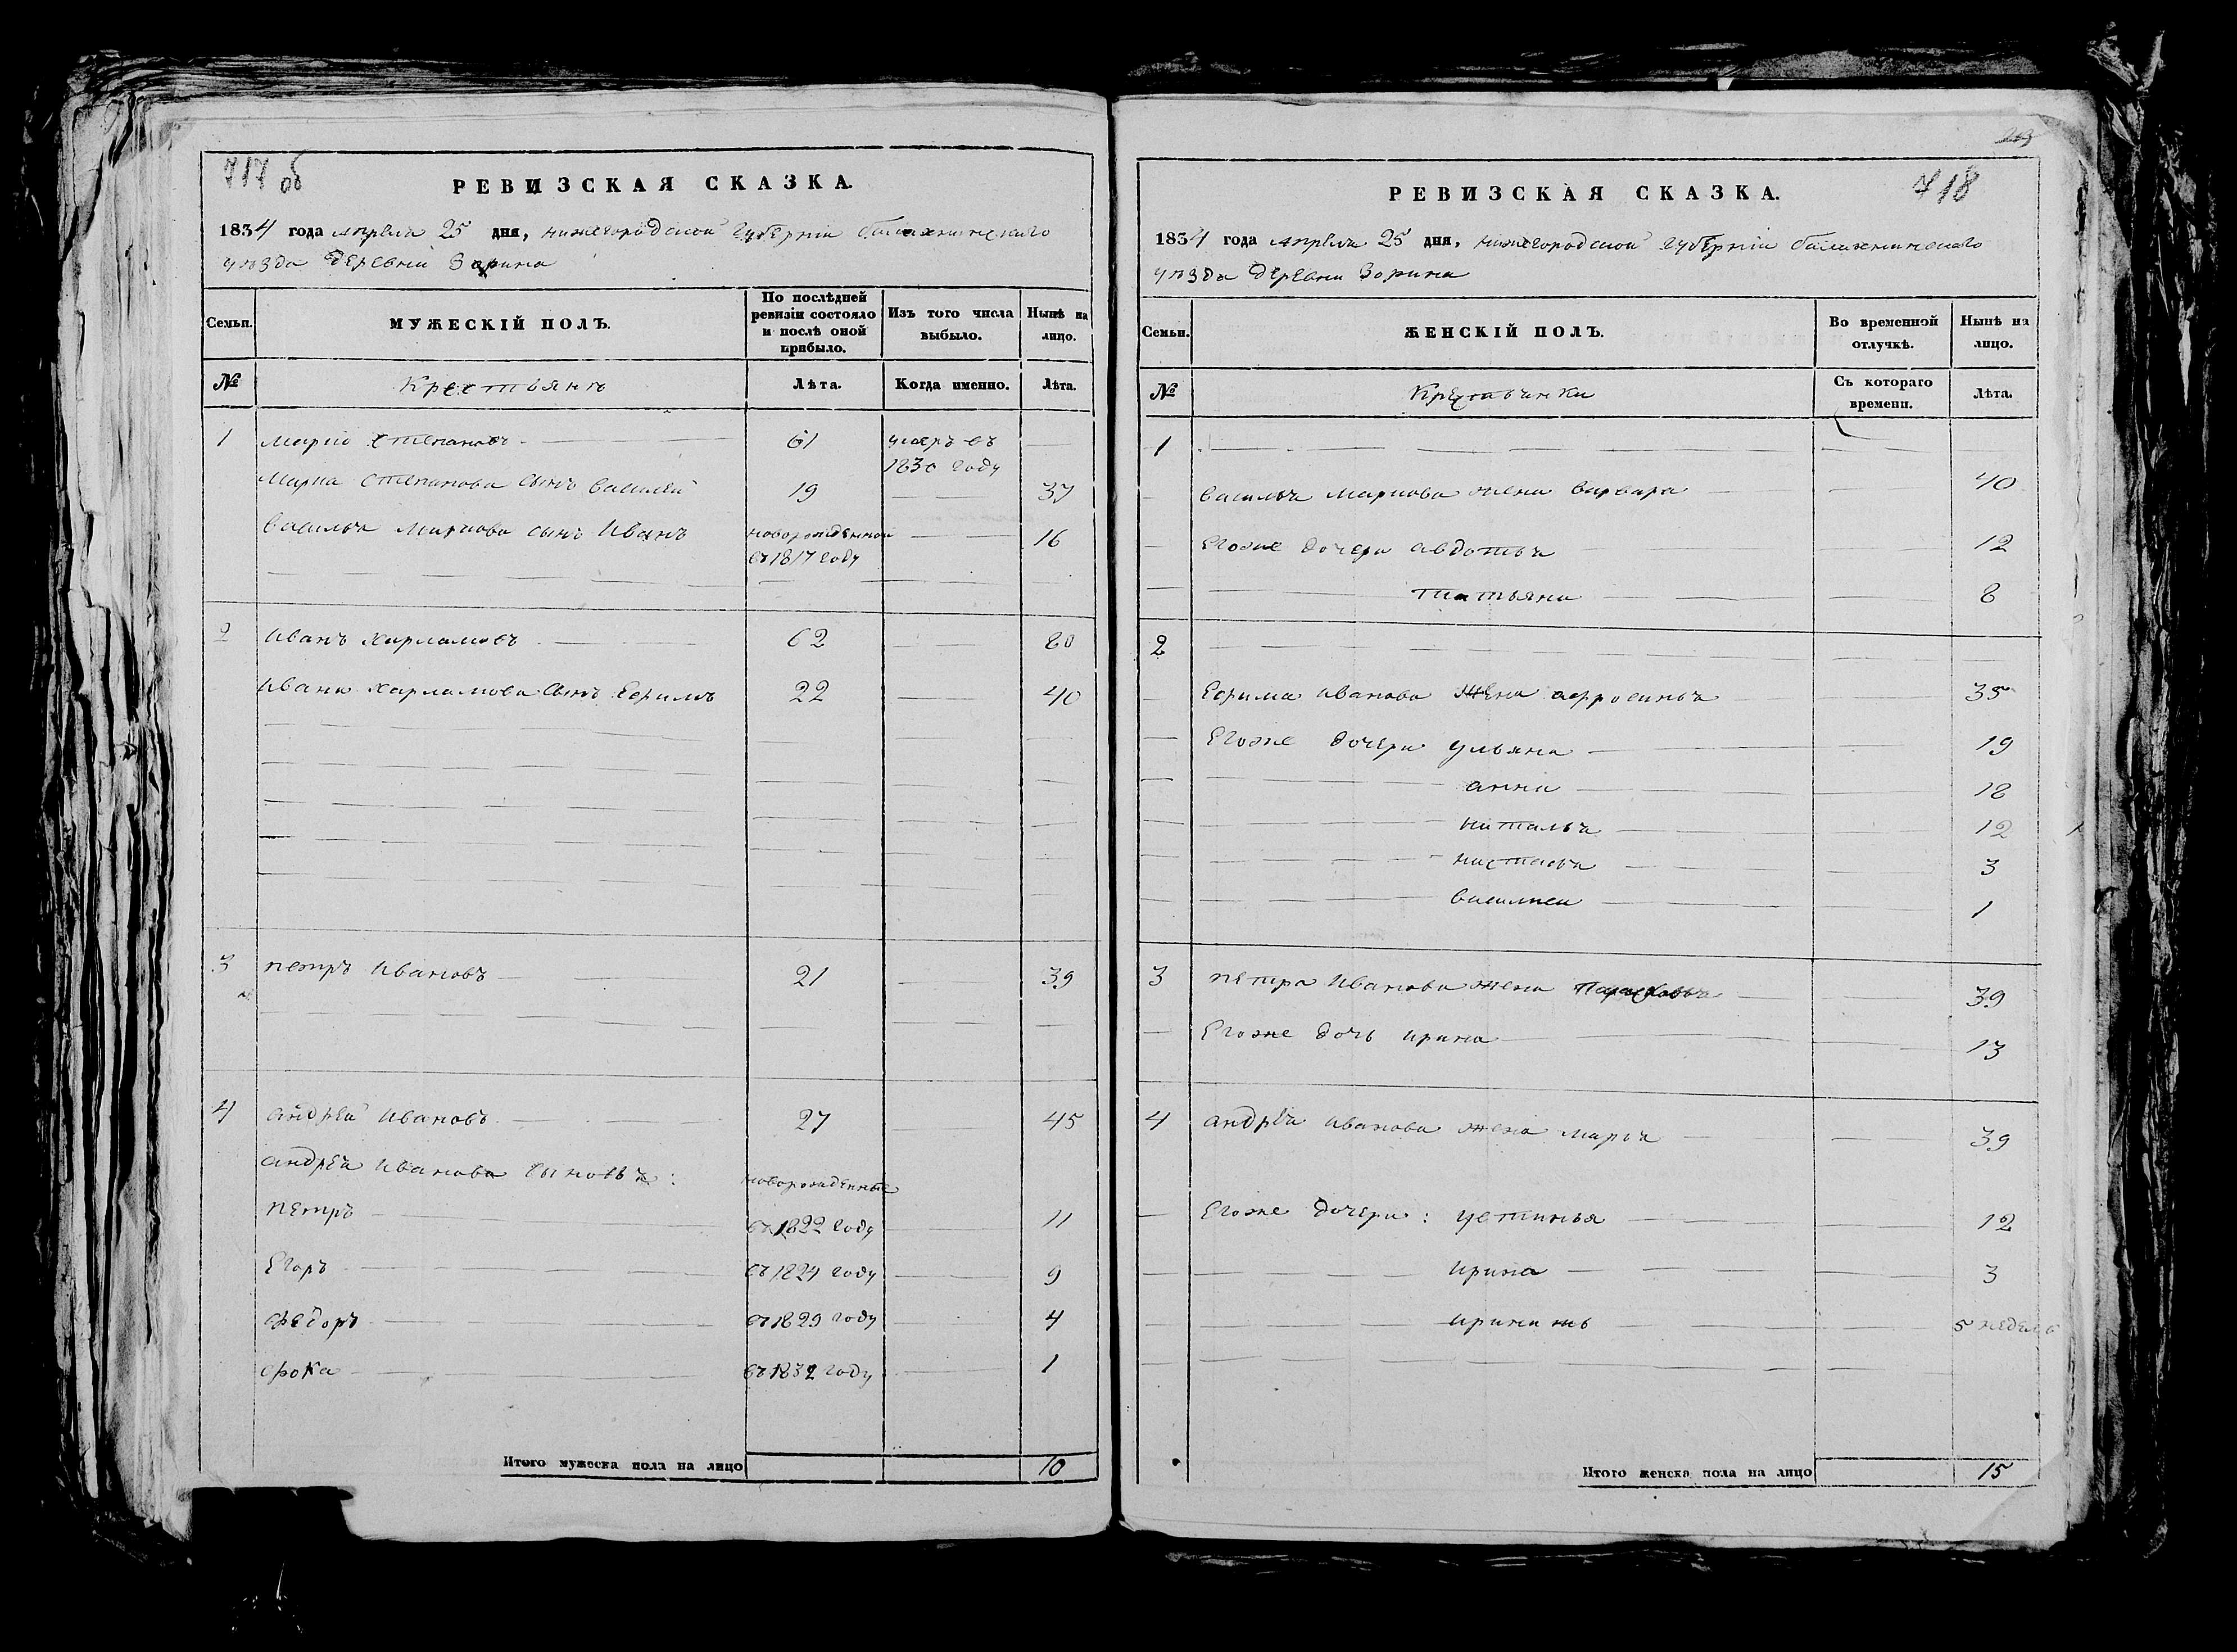 717 об
РЕВИЗСКАЯ СКАЗКА.
1834 года апреля 25 дня, нижегородской губернiи балахнинскаго
уѣзда деревни Зорина
Семьи.
МУЖЕСКIЙ ПОЛЪ.
По послѣдней ревизiи состояло и послѣ оной прибыло.
Изъ того числа выбыло.
Нынѣ на лицо.
№ Крестьянъ Лѣта. Когда именно. Лѣта.
1 Маркъ Степановъ 61 умеръ въ
1830 году
Марка Степанова сынъ Василей 19 37
Василья Маркова сынъ Иванъ новорожденной 16
въ 1817 году
2 Иванъ Харламовъ 62 80
Ивана Харламова сынъ Ефимъ 22 40
3 Петръ Ивановъ 21 39
4 андрей Ивановъ 27 45
андрея Иванова сыновья:
новорожденные
Петръ въ 1822 году 11
Егоръ въ 1824 году 9
Федоръ въ 1829 году 4
Фока въ 1832 году 1
Итого мужеска пола на лицо 10
418
РЕВИЗСКАЯ СКАЗКА.
1834 года апреля 25 дня, нижегородской губернiи балахнинскаго
уѣзда деревни Зорина
Семьи.
ЖЕНСКIЙ ПОЛЪ.
Во временной отлучкѣ.
Нынѣ на лицо.
№ Крестьянки Съ котораго времени. Лѣта.
1
Василья Маркова жена Варвара 40
Егоже дочери авдотья 12
татьяна 8
2
Ефима Иванова жена афросинья 35
Егоже дочери ульяна 19
анна 18
наталья 12
настасья 3
василиса 1
3 Петра Иванова жена Парасковья 39
Егоже дочь ирина 13
4 андрея Иванова жена марья 39
Егоже дочери: устинья 12
ирина 3
5 недель
Итого женска пола на лицо 15